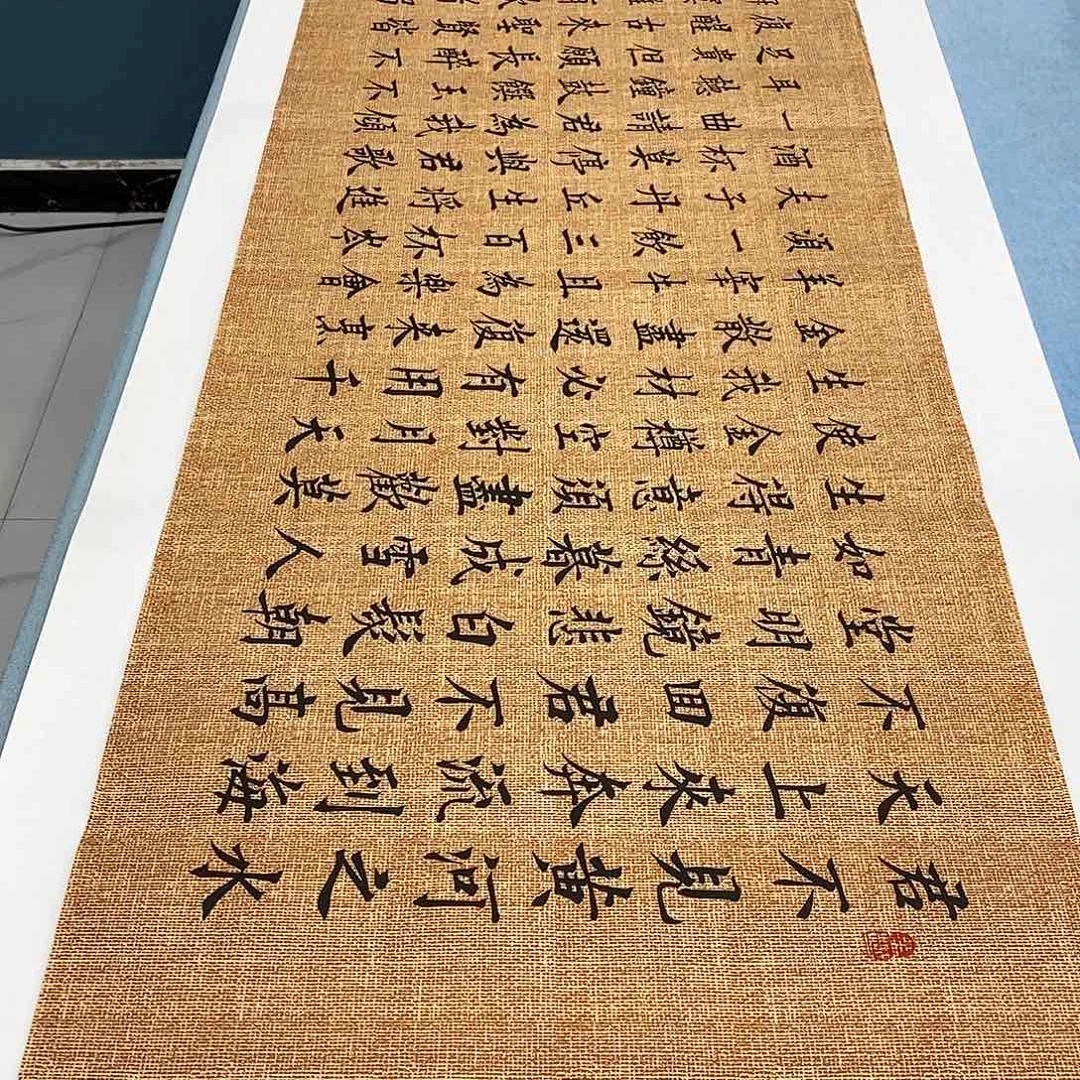 君不見黃河之水
天上來奔流到海
不復回君不見高
堂明鏡悲白髮朝
如青絲暮成雪人
生得意須盡歡莫
使金樽空對月天
生我材必有用千
金散盡還復來烹
羊宰牛且為樂會
須一飲三百杯岑
夫子丹丘生將進
酒杯莫停與君歌
一曲請君為我傾
耳聽鐘鼓饌玉不
足貴但願長醉不
復醒古來聖賢皆